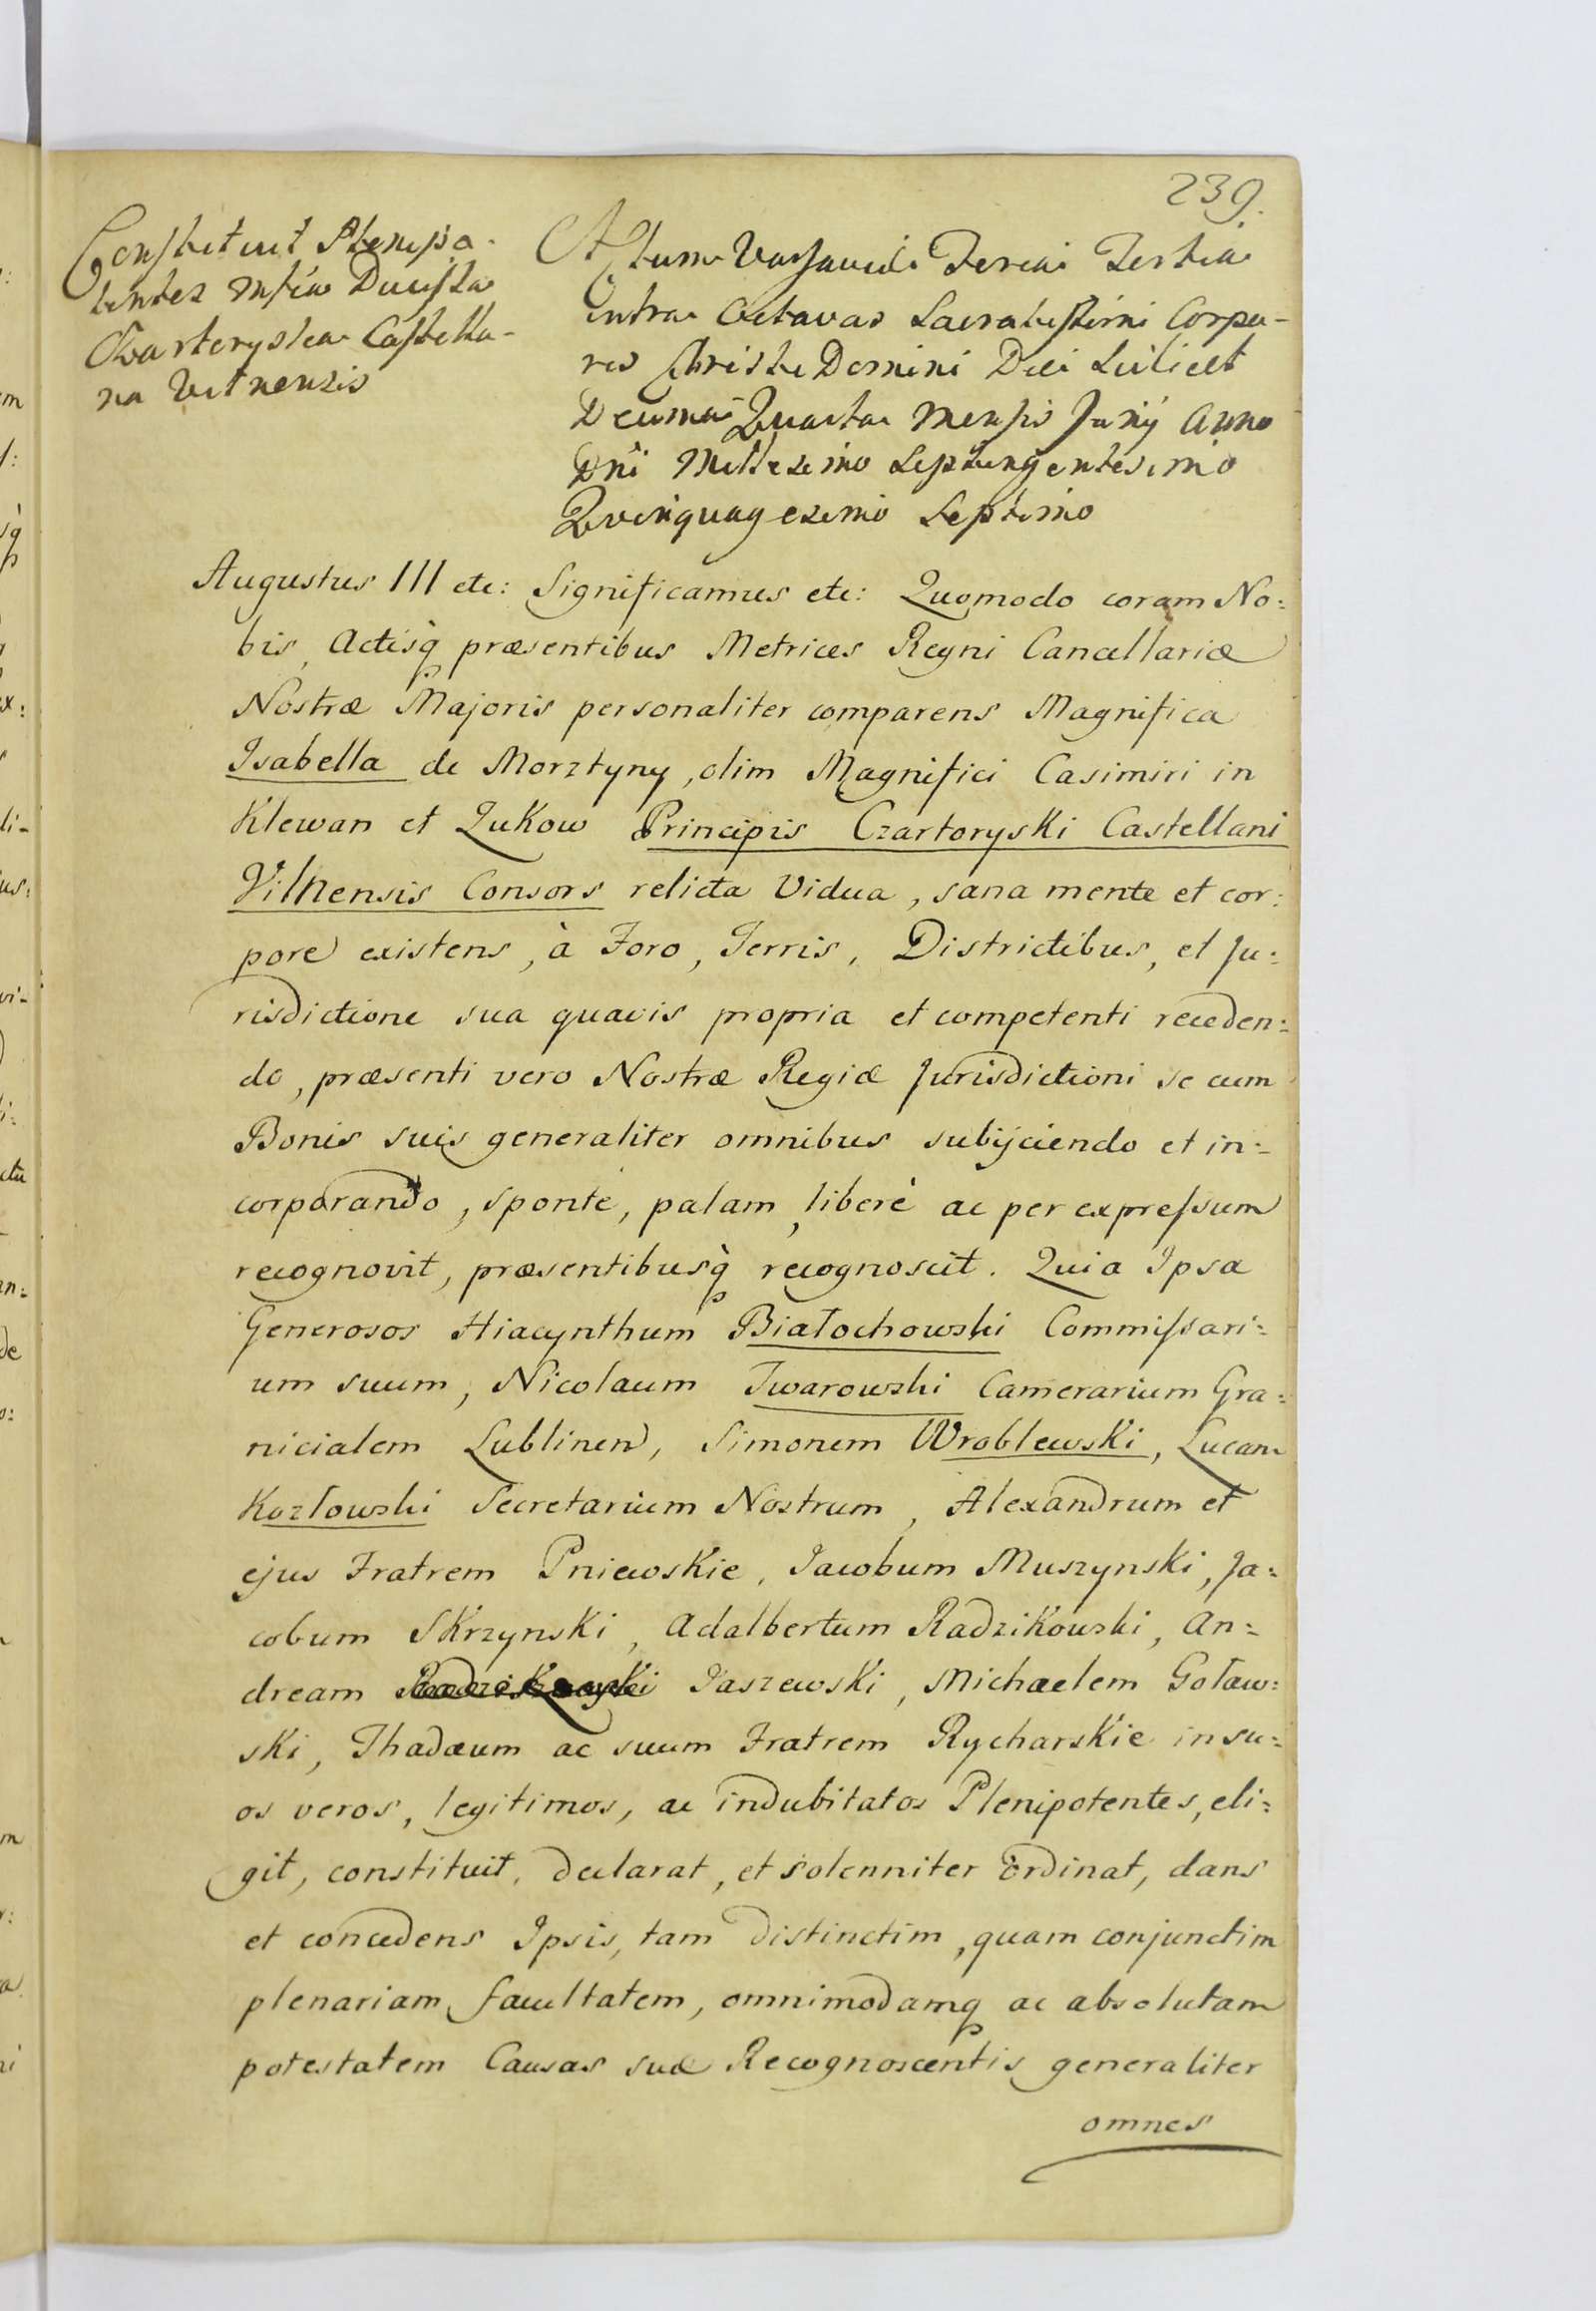 239.
Constituit Plenipo-
tentes Mfica Ducissa
Czartoryska Castella-
na Vilnensis
Actum Varsaviæ Feria Tertia
intra Octavas Sacratissimi Corpo-
ris Christi Domini Die Scilicet
Decima Quarta Mensis Junij Anno
Dni Millesimo Septingentesimo
Quinquagesimo Septimo
Augustus III etc: Significamus etc: Quomodo coram No:
bis, Actisq præsentibus Metrices Regni Cancellariæ
Nostræ Majoris personaliter comparens Magnifica
Isabella de Morztyny, olim Magnifici Casimiri in
Klewan et Zukow Principis Czartoryski Castellani
Vilnensis Consors relicta Vidua, sana mente et cor:
pore existens, à Foro, Terris, Districtibus, et Ju:
risdictione sua quavis propria et competenti receden:
do, præsenti vero Nostræ Regiæ Jurisdictioni se cum
Bonis suis generaliter omnibus subijciendo et in:
corporando, sponte, palam, liberè ac per expressum
recognovit, præsentibusq recognoscit. Quia Ipsa
Generosos Hiacynthum Białochowski Commissari:
um suum, Nicolaum Twarowski Camerarium Gra:
nicialem Lublinen, Simonem Wroblewski, Lucam
Kozłowski Secretarium Nostrum, Alexandrum et
ejus Fratrem Pniewskie, Jacobum Muszynski, Ja:
cobum Skrzynski, Adalbertum Radzikowski, An:
dream Jaszewski, Michaelem Goław:
ski, Thadæum ac suum Fratrem Rycharskie in su:
os veros, legitimos, ac indubitatos Plenipotentes, eli:
git, constituit, declarat, et solenniter ordinat, dans
et concedens Ipsis, tam distinctim, quam conjunctim
plenariam facultatem, omnimodamq ac absolutam
potestatem Causas suæ Recognoscentis generaliter
omnes